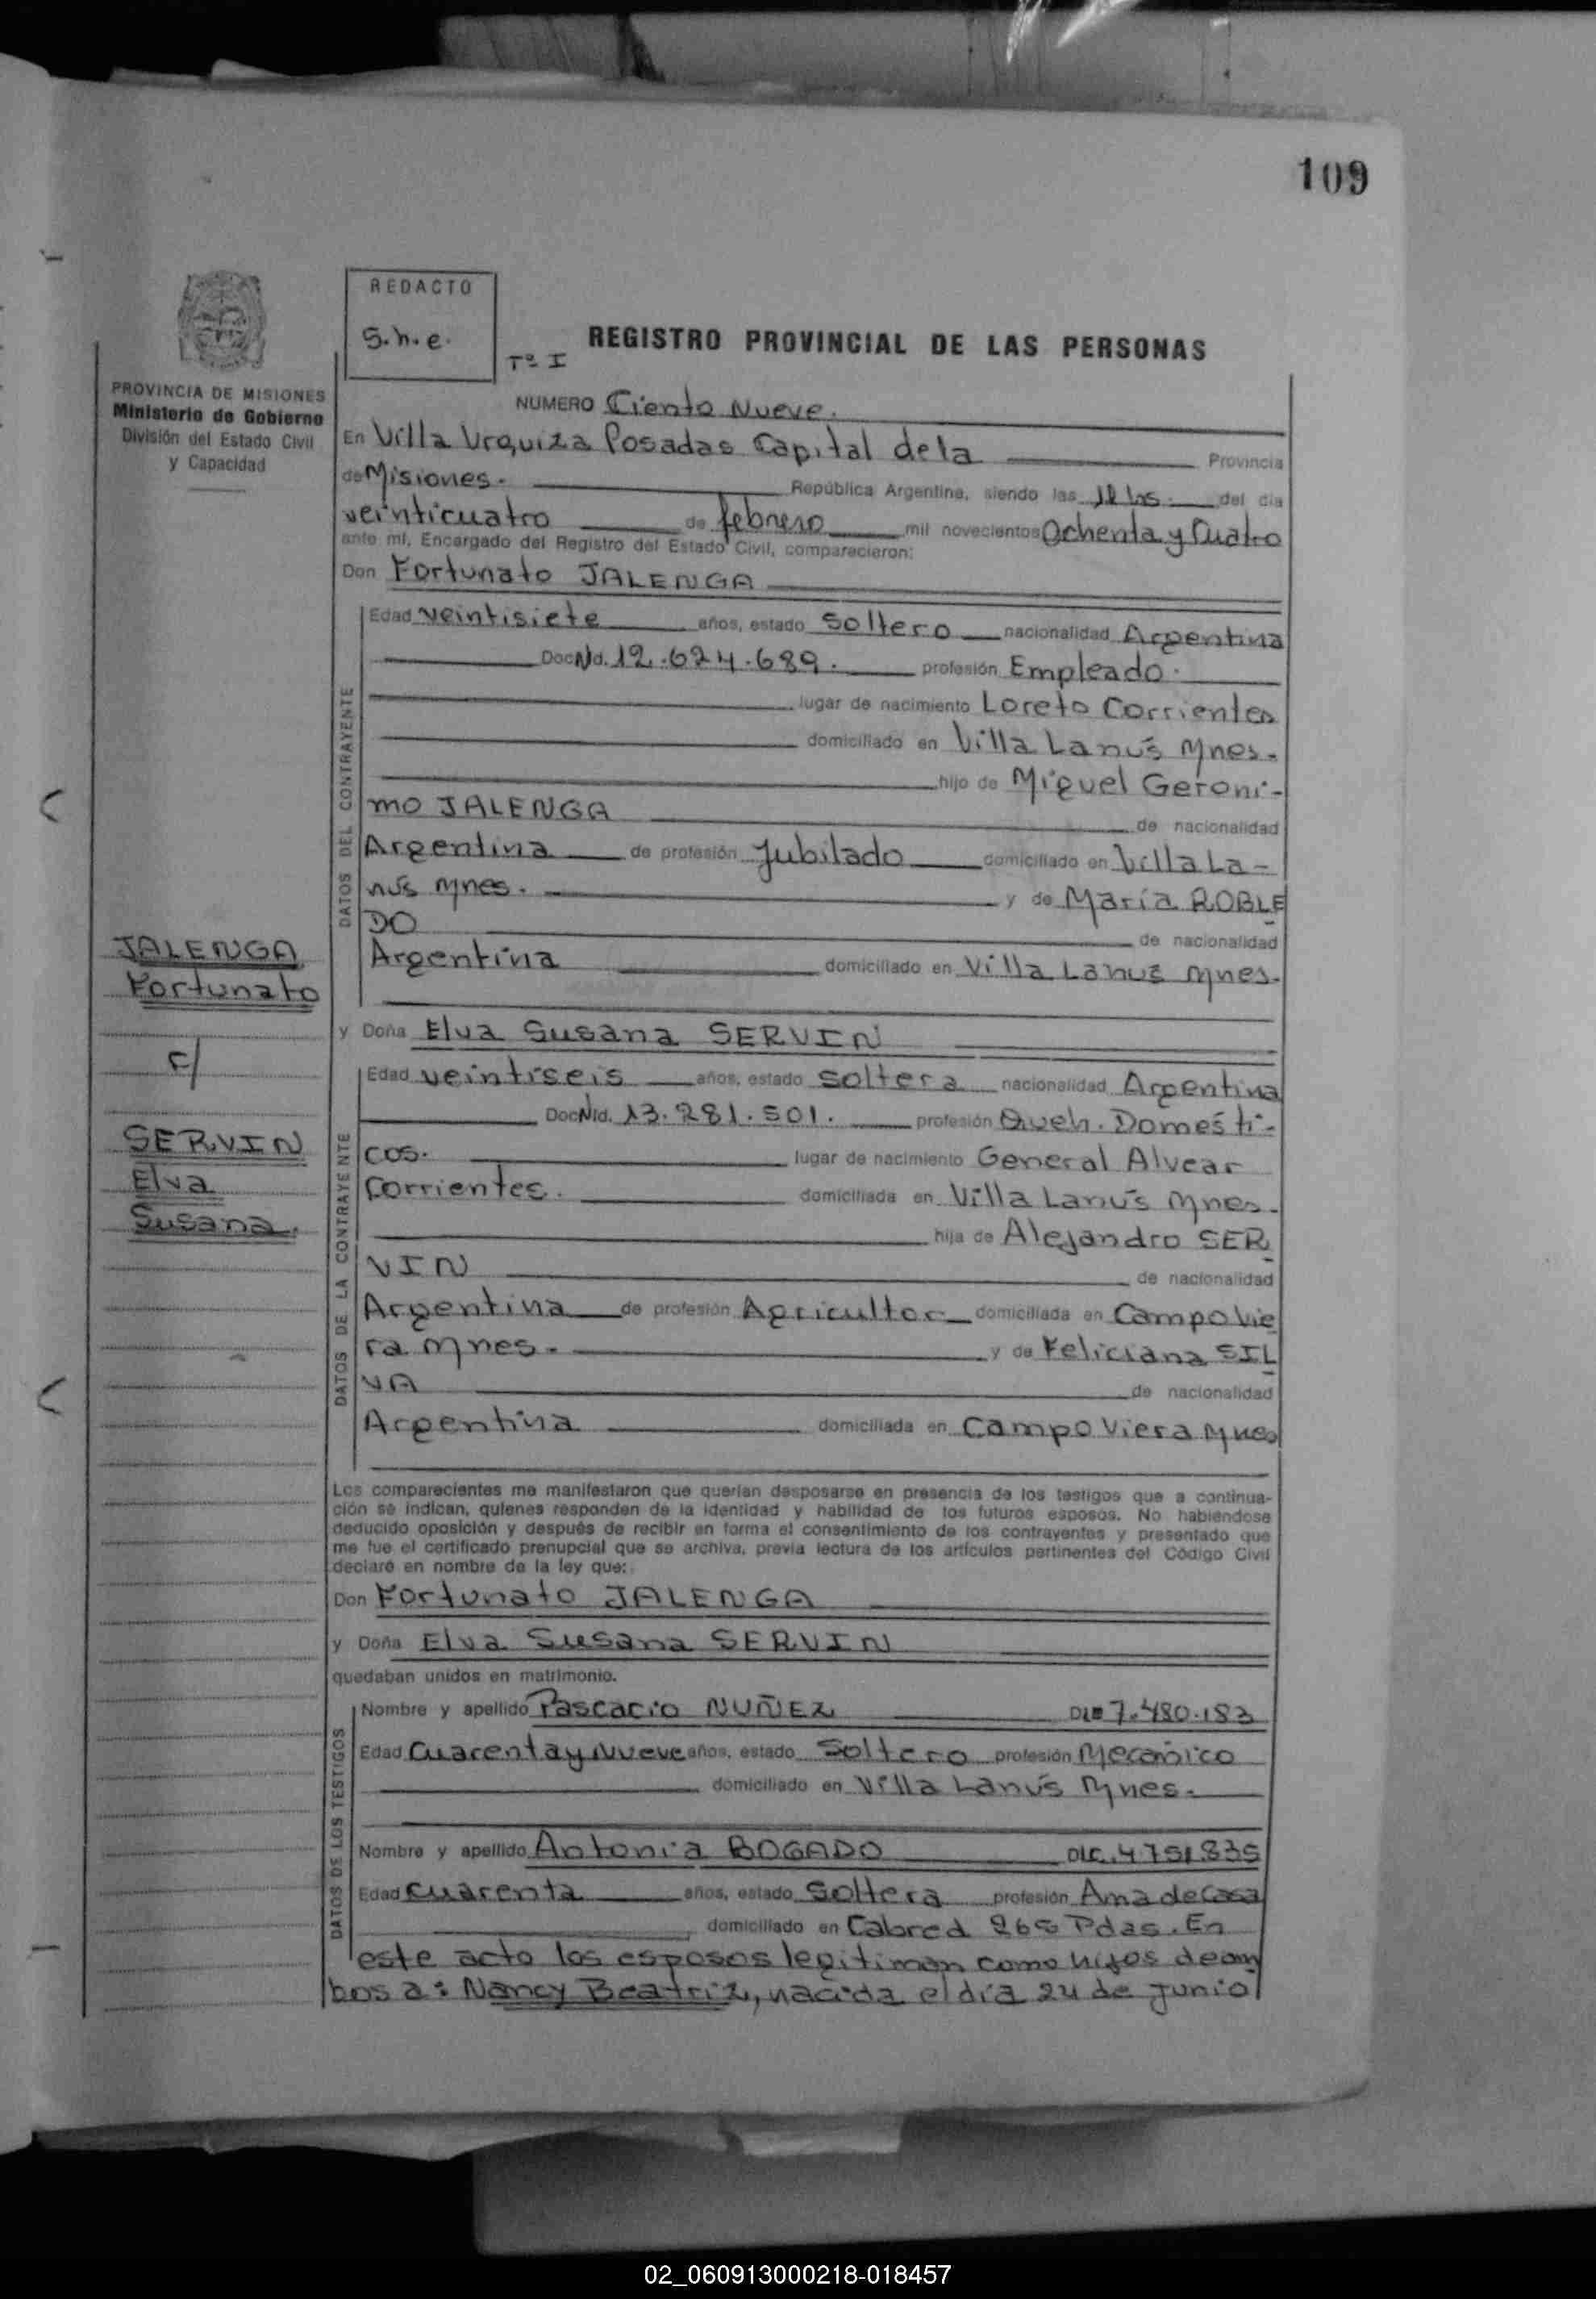 109
REDACTO
S.h.e.
Tº I
REGISTRO PROVINCIAL DE LAS PERSONAS
PROVINCIA DE MISIONES
Ministerio de Gobierno
División del Estado Civil
y Capacidad
NUMERO Ciento Nueve.
En Villa Urquiza Posadas Capital de la Provincia
de Misiones. República Argentina, siendo las hs. del día
veinticuatro de febrero mil novecientos Ochenta y Cuatro
ante mí, Encargado del Registro del Estado Civil, comparecieron:
Don Fortunato JALENGA
DATOS DEL CONTRAYENTE
Edad veintisiete años, estado Soltero nacionalidad Argentina
Doc Nd. 12.624.689. profesión Empleado.
lugar de nacimiento Loreto Corrientes
domiciliado en Villa Lanús Mnes.
hijo de Miguel Geroni-
mo JALENGA de nacionalidad
Argentina de profesión Jubilado domiciliado en Villa La-
nús Mnes. y de María ROBLE
DO de nacionalidad
Argentina domiciliado en Villa Lanus Mnes.
JALENGA
Fortunato
c/
SERVIN
Elva
Susana.
y Doña Elva Susana SERVIN
DATOS DE LA CONTRAYENTE
Edad veintiseis años, estado soltera nacionalidad Argentina
Doc NId. 13.281.501. profesión Queh. Domesti-
cos. lugar de nacimiento General Alvear
Corrientes. domiciliada en Villa Lanús Mnes.
hija de Alejandro SER
VIN de nacionalidad
Argentina de profesión Agricultor domiciliada en Campo Vie
ra Mnes. y de Feliciana SIL
VA de nacionalidad
Argentina domiciliada en Campo Viera Mnes
Los comparecientes me manifestaron que querían desposarse en presencia de los testigos que a continua-
ción se indican, quienes responden de la identidad y habilidad de los futuros esposos. No habiéndose
deducido oposición y después de recibir en forma el consentimiento de los contrayentes y presentado que
me fue el certificado prenupcial que se archiva, previa lectura de los artículos pertinentes del Código Civil
declaré en nombre de la ley que:
Don Fortunato JALENGA
y Doña Elva Susana SERVIN
quedaban unidos en matrimonio.
DATOS DE LOS TESTIGOS
Nombre y apellido Pascacio NUÑEZ 7.480.183
Edad Cuarenta y Nueve años, estado Soltero profesión Mecánico
domiciliado en Villa Lanús Mnes.
Nombre y apellido Antonia BOGADO DLC. 4751835
Edad Cuarenta años, estado Soltera profesión Ama de Casa
domiciliado en Cabred Pdas. En
este acto los esposos legitiman como hijos de am
bos a: Nancy Beatriz, nacida el día 24 de junio
02_060913000218-018457